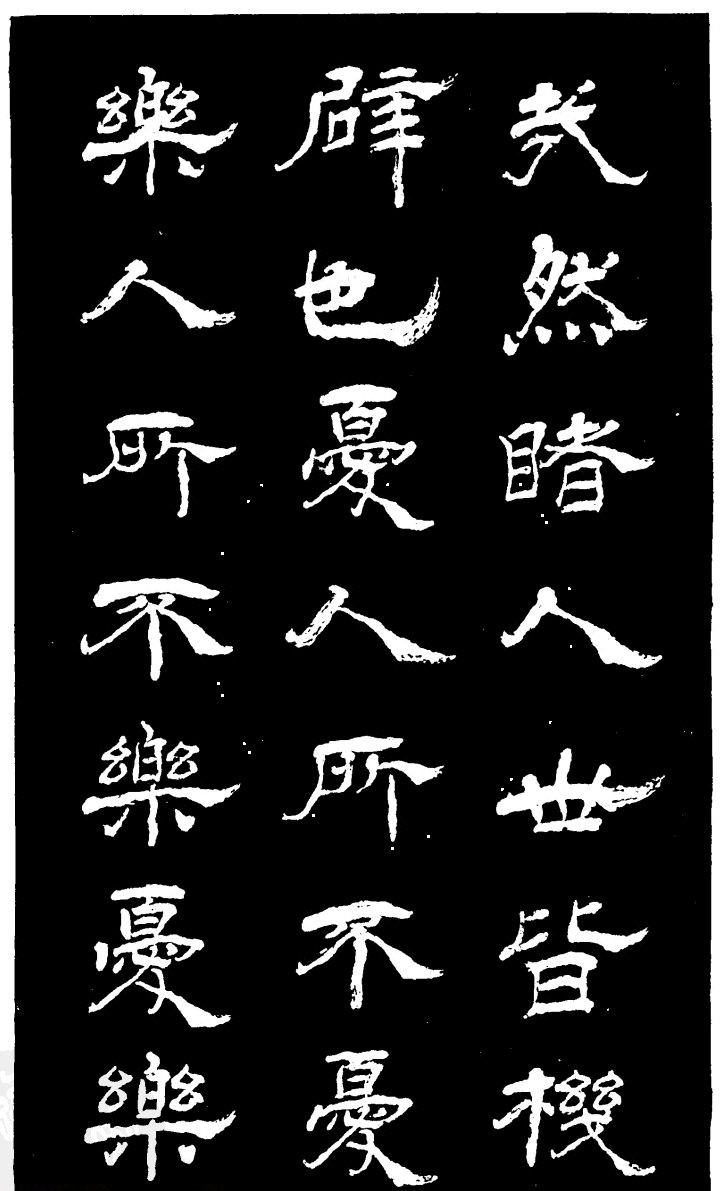 矣然睹人世皆機
辟也憂人所不憂
樂人所不樂憂樂